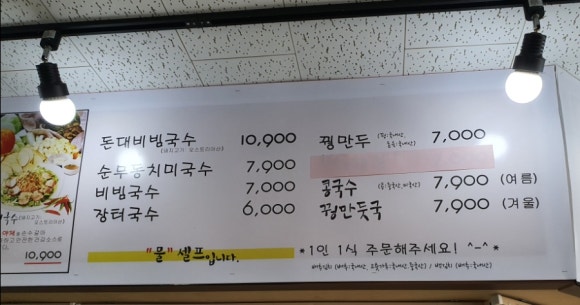 돈대비빔국수 10,900
순무동치미국수 7,900
비빔국수 7,000
장터국수 6,000
"물" 셀프입니다.
꿩만두 7,000
콩국수 7,900 (여름)
꿩만둣국 7,900 (겨울)
*1인 1식 주문해주세요! ^-^*
국수
10,900